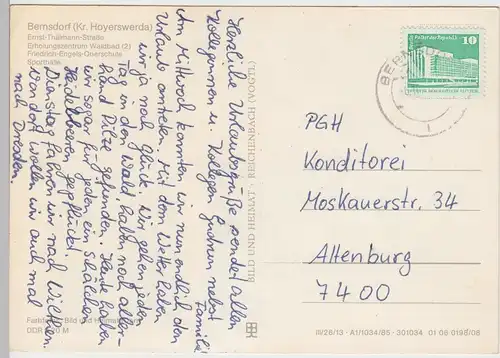 Bernsdorf (Kr. Hoyerswerda)
Ernst-Thälmann-Straße
Erholungszentrum Waldbad (2)
Friedrich-Engels-Oberschule
Sporthalle
Herzliche Urlaubsgrüße sendet allen
Kolleginnen u. Kollegen nebst
Familie
Am Mittwoch konnten wir nun endlich den
Urlaub antreten. Mit dem Wetter haben
wir ja noch Glück. Wir gehen jeden
Tag in den Wald, haben noch aller-
hand Pilze gefunden. Heute haben
wir sogar für jeden ein Schälchen
Heidelbeeren gepflückt.
Dienstag fahren wir nach Wilthen,
von dort wollen wir auch mal
nach Dresden.
BILD UND HEIMAT REICHENBACH (VOGTL)
10
BERNSDORF
PGH
Konditorei
Moskauerstr. 34
Altenburg
7400
Bild und Heimat
DDR M
III/26/13 · A1/1034/85 · 301034 01 08 0198/08